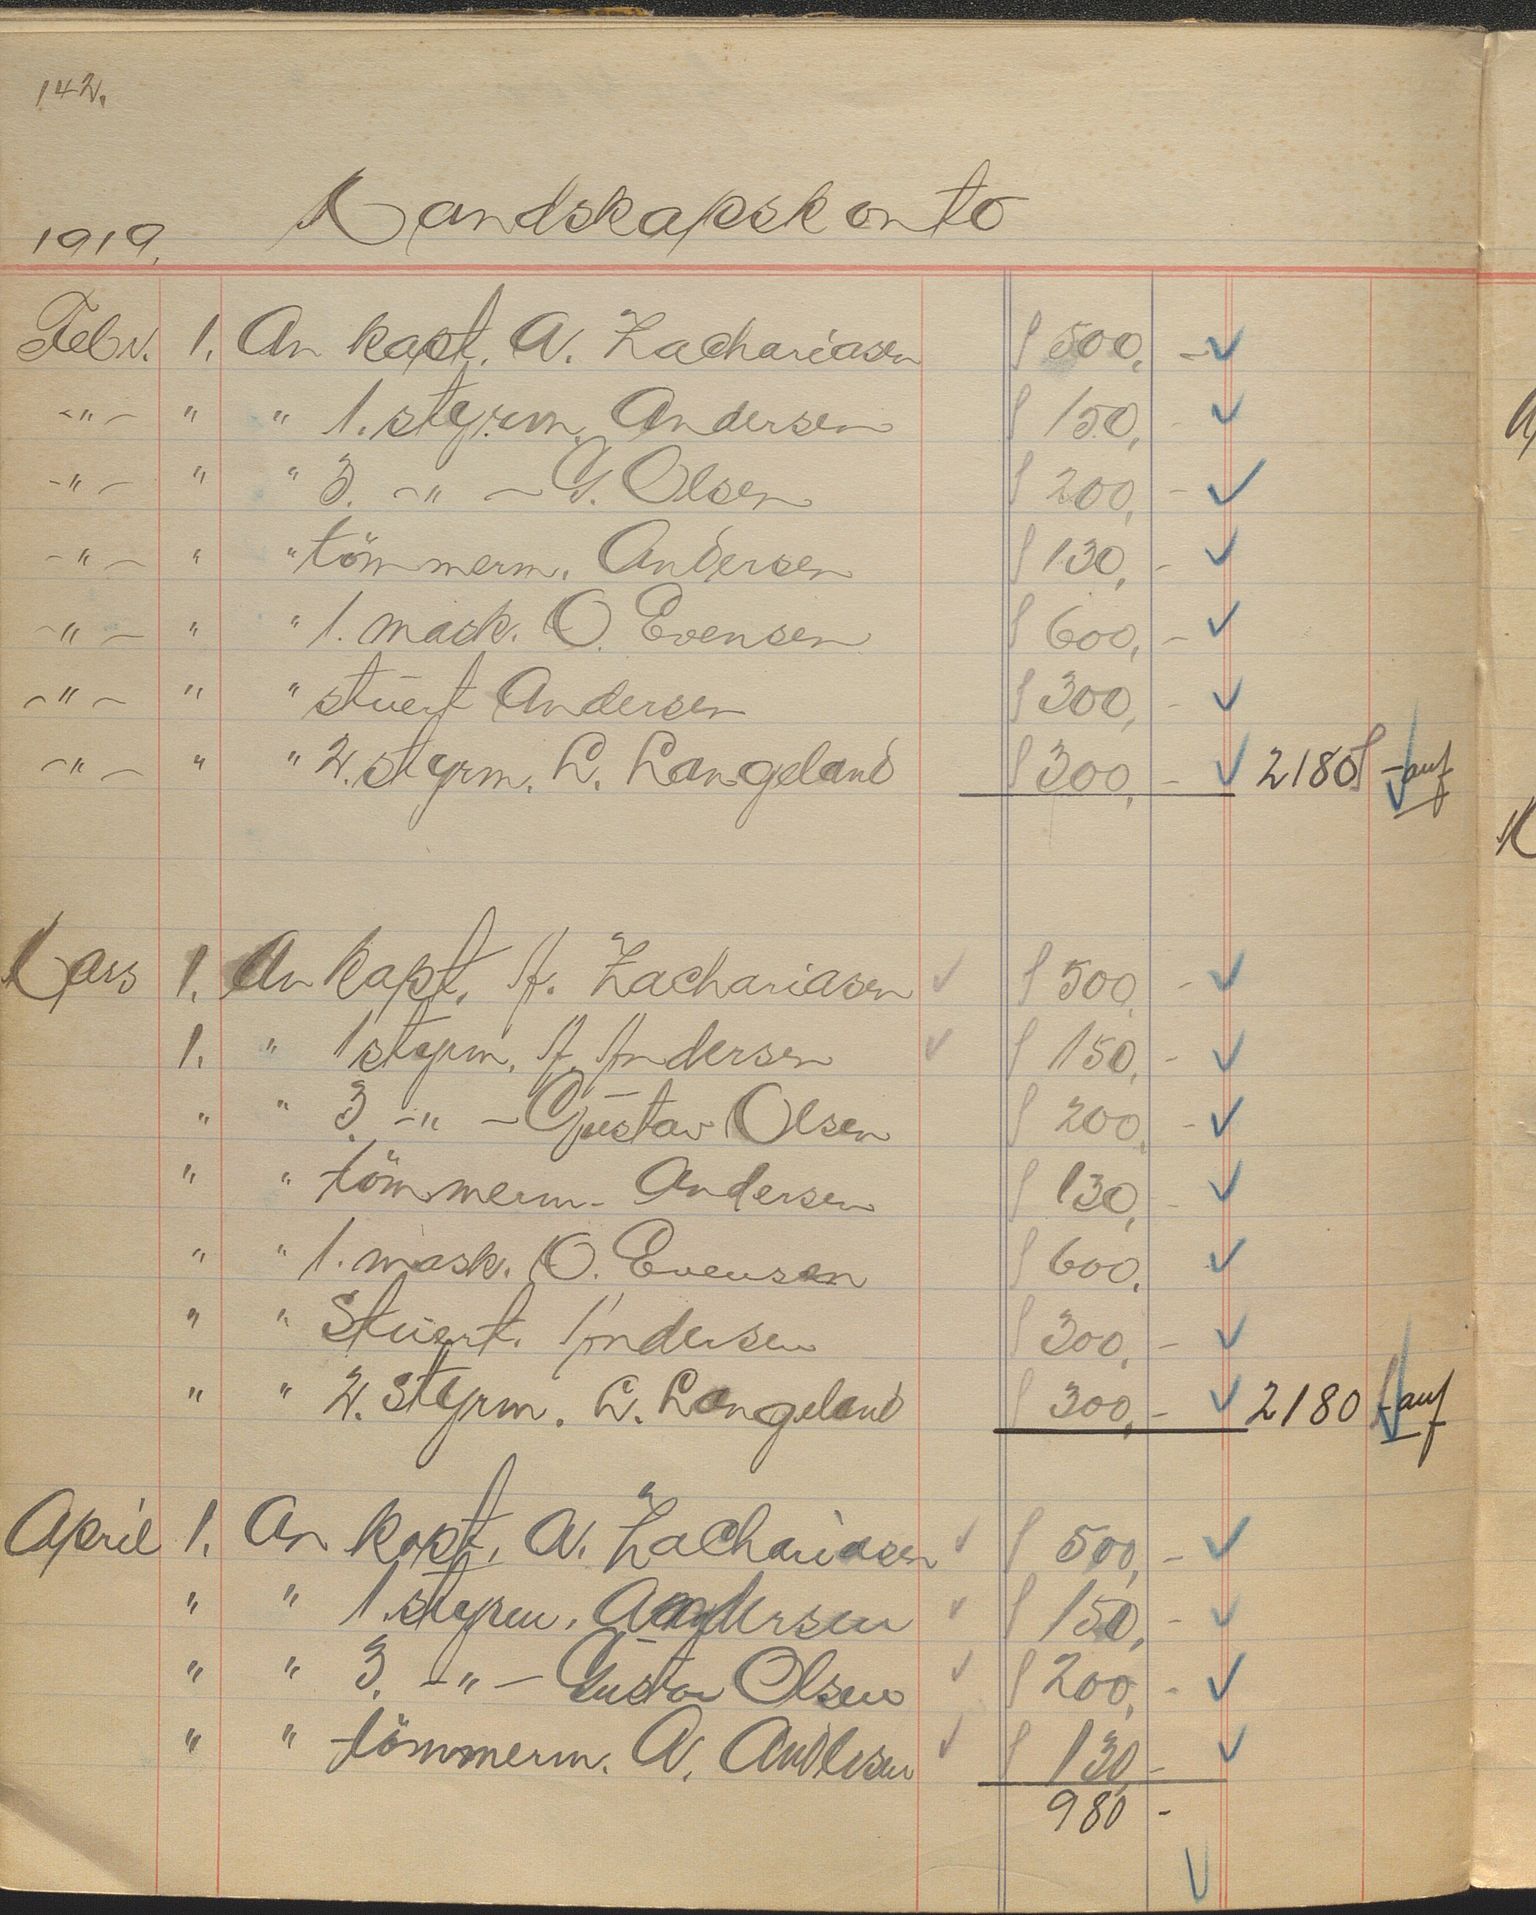 142.
1919. Mandskapskonto
Febr. 1. An kapt. A. Zachariasen 500, -
-"- " " 1. styrm. Andersen 150, -
-"- " " 3. -"- G. Olsen 200, -
-"- " " tömmerm. Andersen 130, -
-"- " " 1. mask. O. Evensen 600, -
-"- " " stuert Andersen 300, -
-"- " " 2. styrm. L. Langeland 300, - 2180 -
Mars 1. An kapt. A. Zachariasen 500, -
1. " 1 styrm. A. Andersen 150, -
" " 3. -"- Gustav Olsen 200, -
" " tömmerm. Andersen 130, -
" " 1. mask. O. Evensen 600,
" " Stuert. Andersen 300, -
" " 2. styrm. L. Langeland 300, - 2180 -
April 1. An kapt. A. Zachariasen 500, -
" " 1. styrm. Andersen 150, -
" " 3. -"- Gustav Olsen 200, -
" " tömmerm. A. Andersen 130, -
980 -